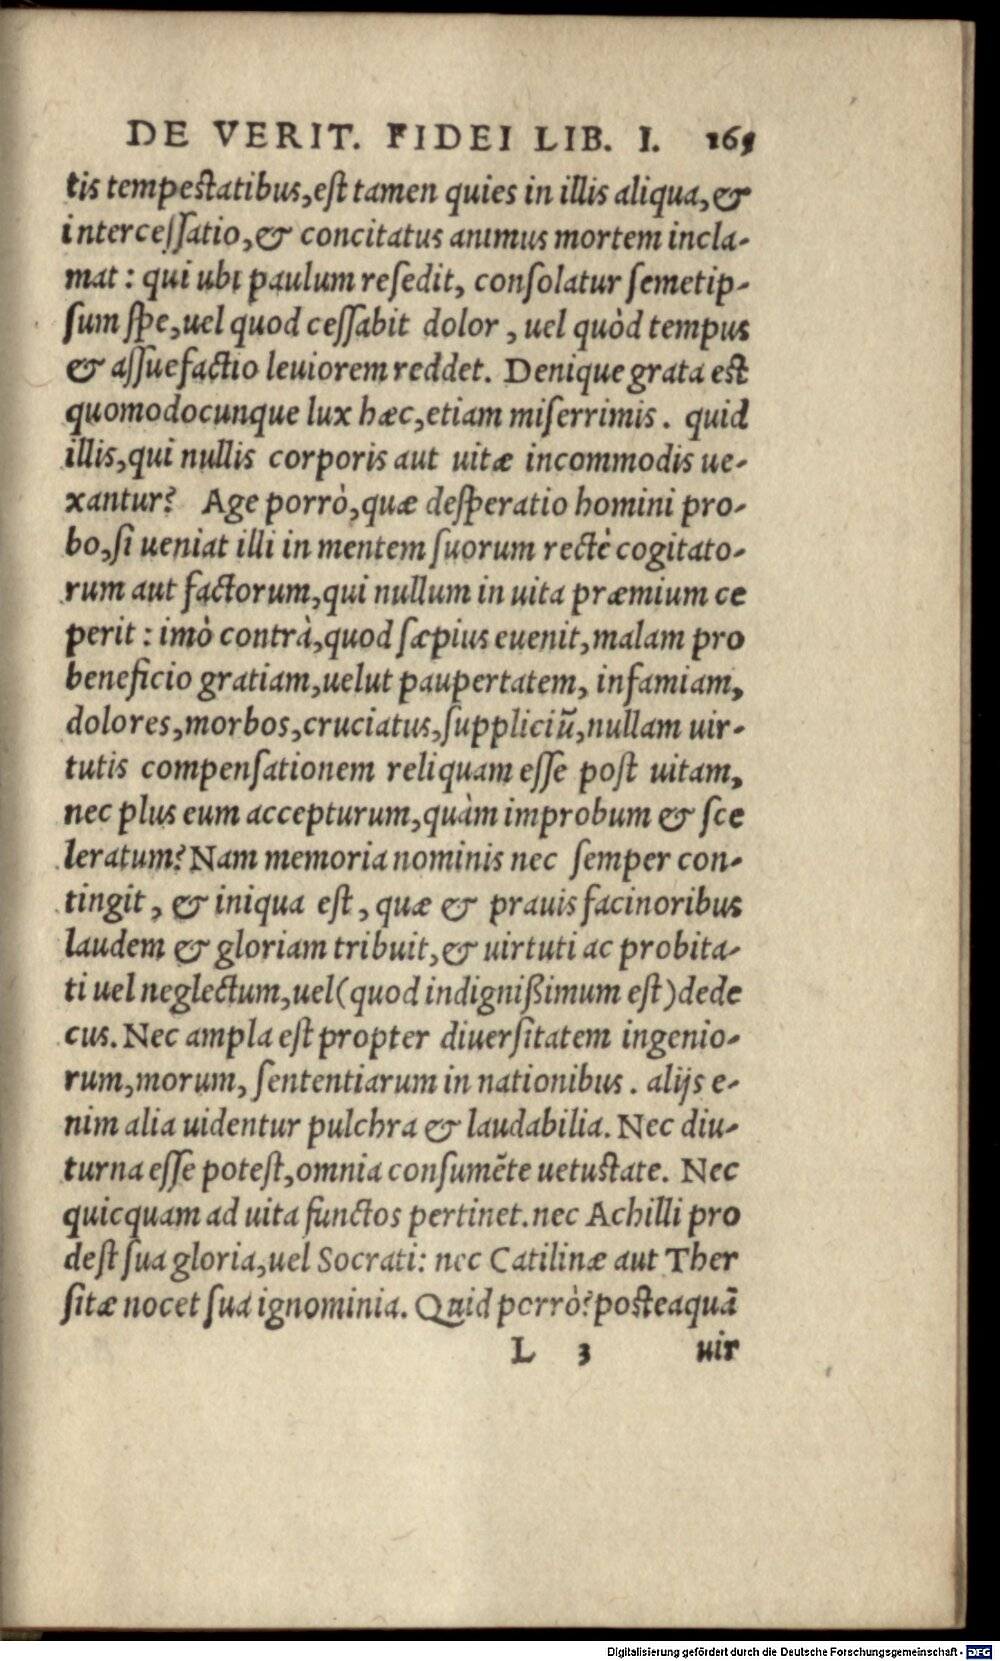 DE VERIT. FIDEI LIB. I. 165
tis tempestatibus,est tamen quies in illis aliqua,&
intercessatio,& concitatus animus mortem incla-
mat: qui ubi paulum resedit, consolatur semetip-
sum spe,uel quod cessabit dolor, uel quòd tempus
& assuefactio leuiorem reddet. Denique grata est
quomodocunque lux hæc,etiam miserrimis. quid
illis,qui nullis corporis aut uitæ incommodis ue-
xantur? Age porrò,quæ desperatio homini pro-
bo,si ueniat illi in mentem suorum rectè cogitato-
rum aut factorum,qui nullum in uita præmium ce
perit: imò contrà,quod sæpius euenit,malam pro
beneficio gratiam,uelut paupertatem, infamiam,
dolores,morbos,cruciatus,suppliciũ,nullam uir-
tutis compensationem reliquam esse post uitam,
nec plus eum accepturum,quàm improbum & sce
leratum? Nam memoria nominis nec semper con-
tingit, & iniqua est, quæ & prauis facinoribus
laudem & gloriam tribuit,& uirtuti ac probita-
ti uel neglectum,uel(quod indignißimum est)dede
cus. Nec ampla est propter diuersitatem ingenio-
rum,morum, sententiarum in nationibus. alijs e-
nim alia uidentur pulchra & laudabilia. Nec diu-
turna esse potest,omnia consumẽte uetustate. Nec
quicquam ad uita functos pertinet. nec Achilli pro
dest sua gloria,uel Socrati: nec Catilinæ aut Ther
sitæ nocet sua ignominia. Quid porrò? posteaquã
L 3 uir
Digitalisierung gefördert durch die Deutsche Forschungsgemeinschaft - DFG